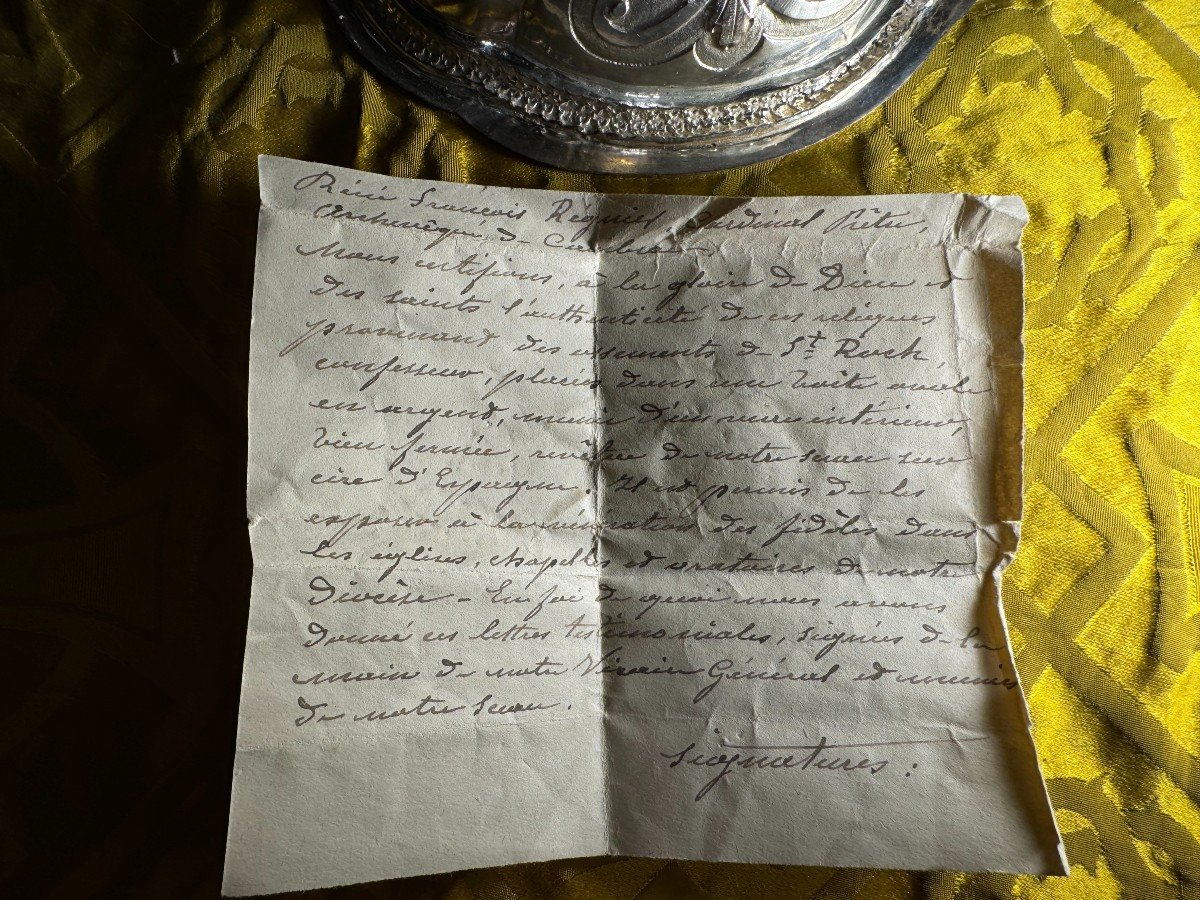 Réné François Regnier, Cardinal Prêtre,
Archevêque de Cambrai
Nous certifions, à la gloire de Dieu et
des saints l'authenticité de ces reliques
provenant des ossements de St Roch,
confesseur, placées dans une boîte ovale
en argent, munie d'un verre intérieur,
bien fermée, revêtue de notre sceau sur
cire d'Espagne. Il est permis de les
exposer à la vénération des fidèles dans
les églises, chapelles et oratoires de notre
Diocèse - En foi de quoi nous avons
donné ces lettres testimoniales, signées de la
main de notre Vicaire Général et munies
de notre sceau.
Signatures :